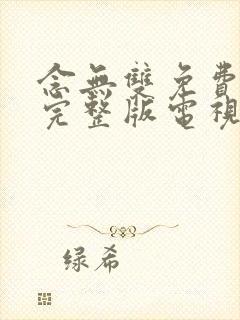 念無雙免費
完整版電視
绿希